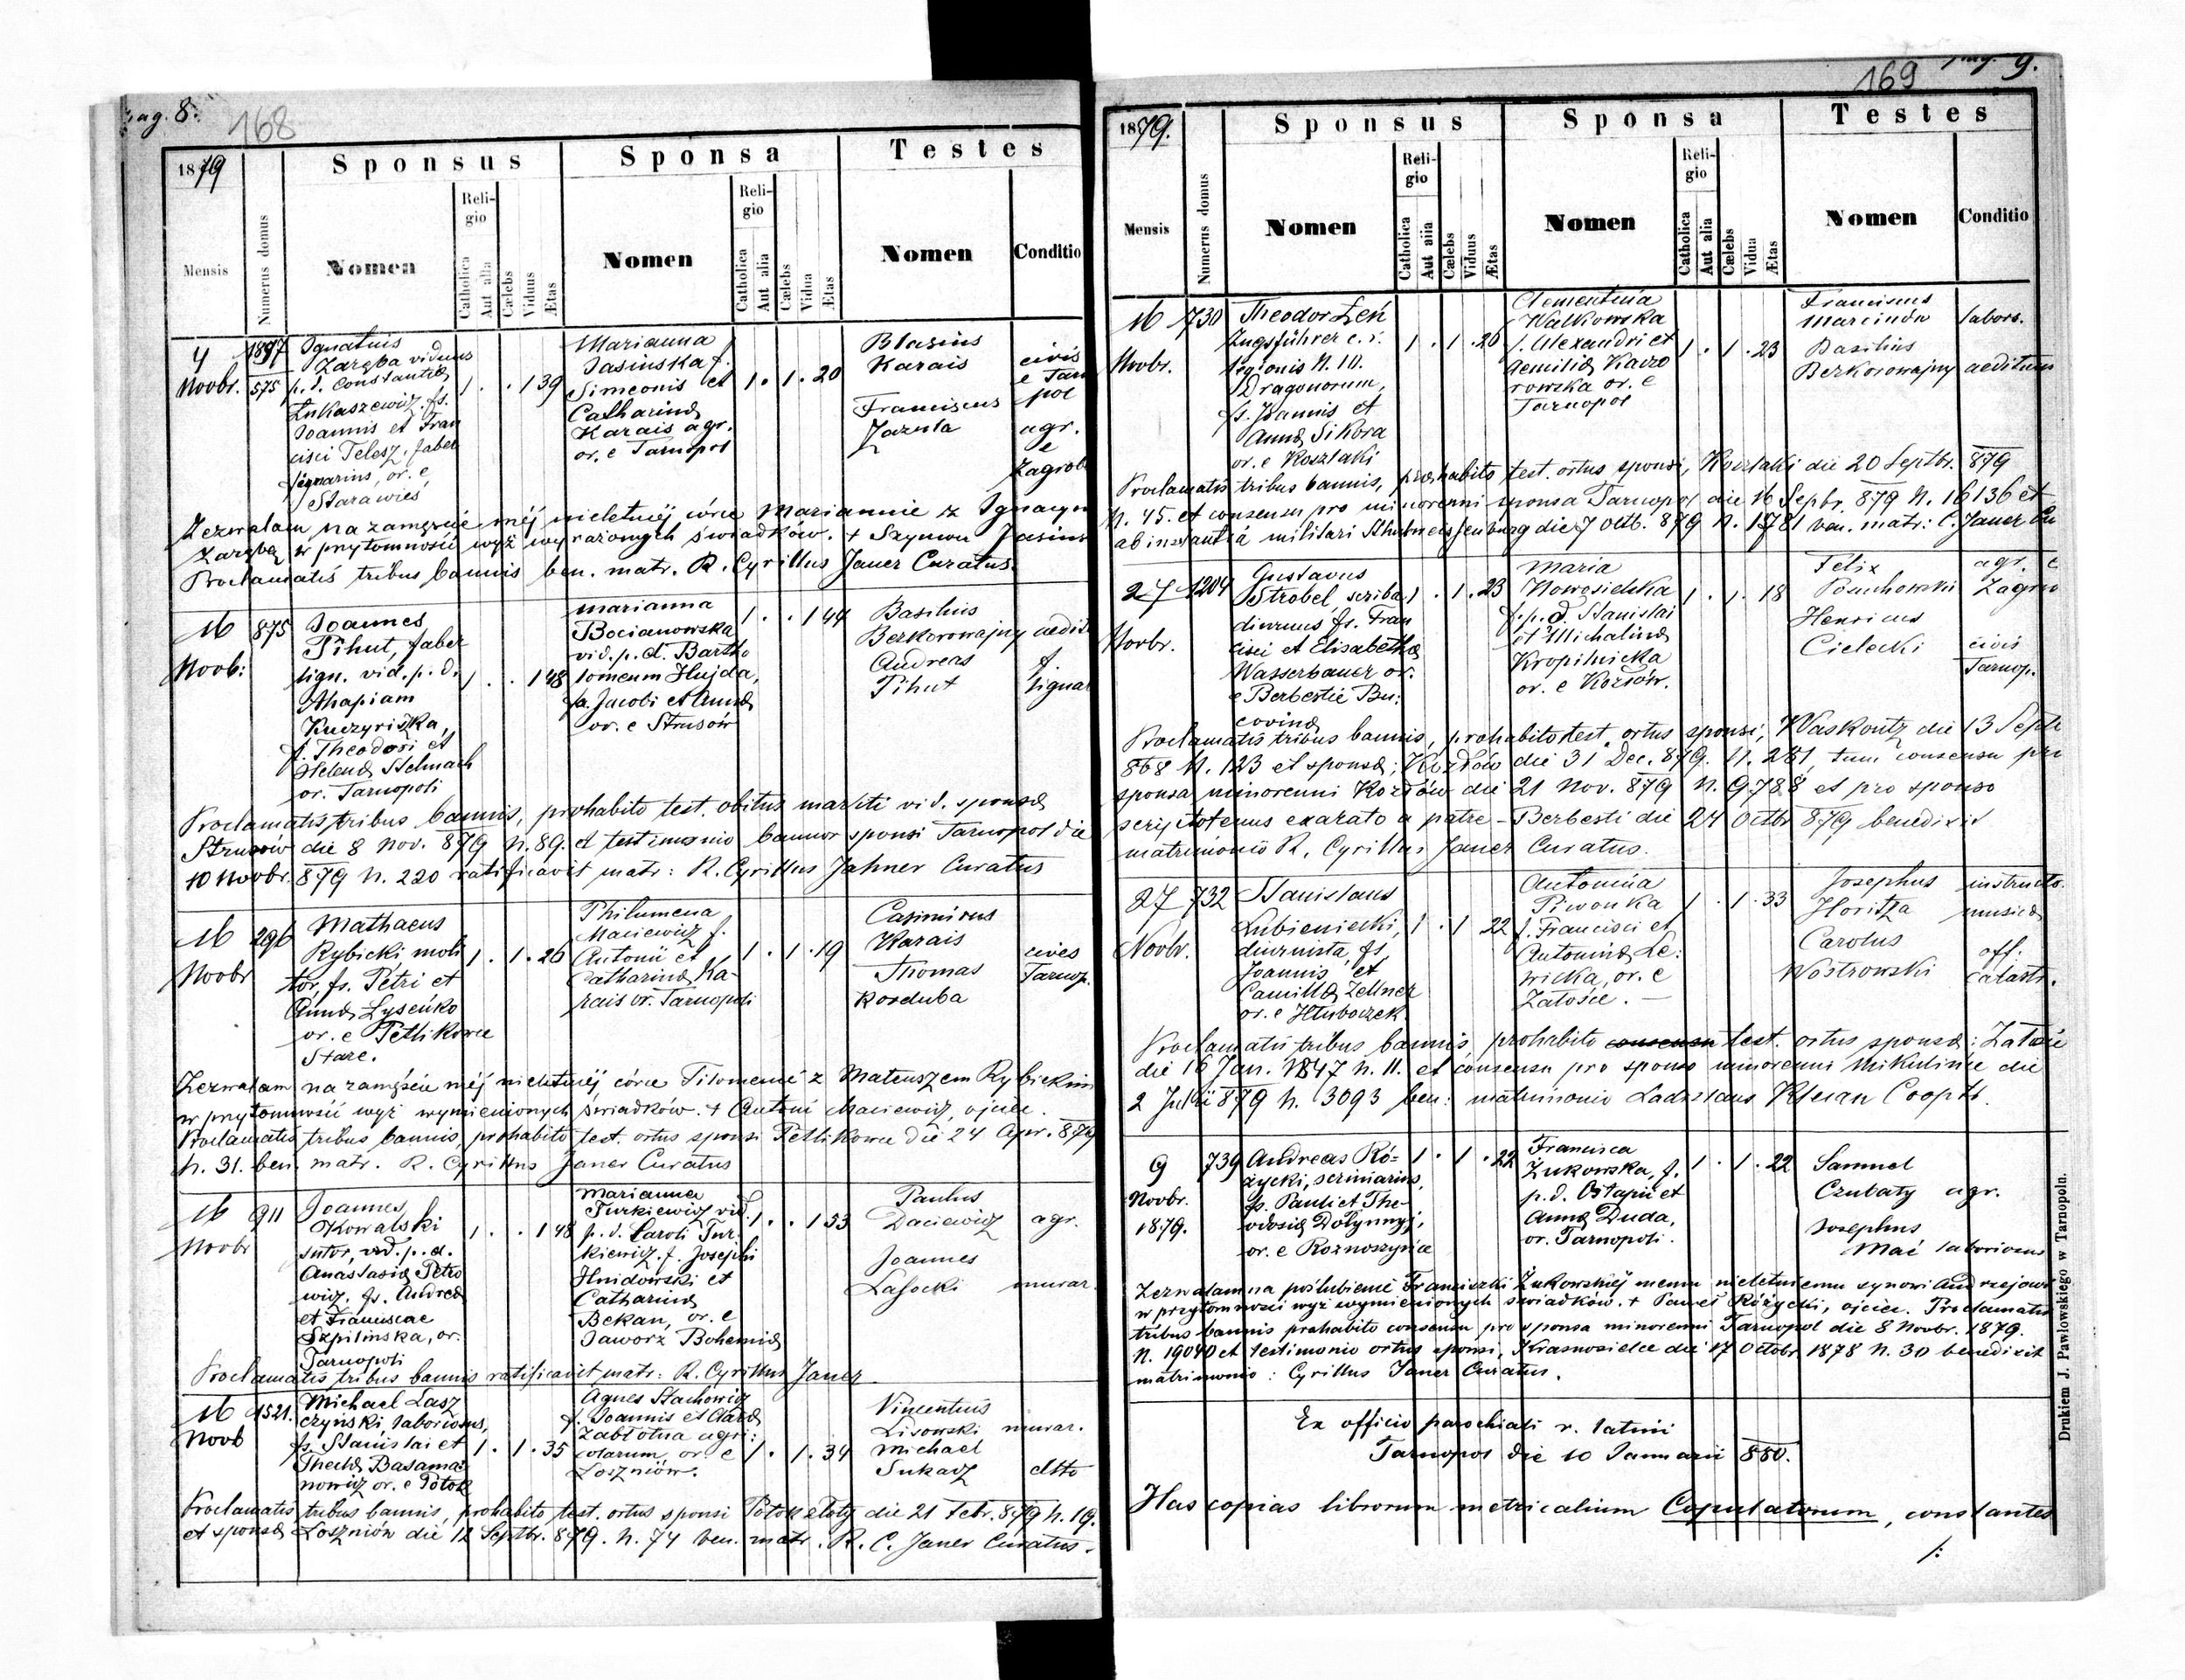 pag. 8.
168
1879
Sponsus
Sponsa
Testes
Mensis
Numerus domus
Nomen
Religio
Catholica
Aut alia
Cælebs
Viduus
Ætas
Nomen
Religio
Catholica
Aut alia
Cælebs
Vidua
Ætas
Nomen
Conditio
4
Novbr.
1897
575
Ignatius
Zaręba viduus
p. d. Constantia
Łukaszewicz, fs.
Joannis et Fran
cisci Telesz, faber
lignarius, or. e
Starawieś
1 . . 1 39
Marianna
Jasinska f.
Simeonis et
Catharinæ
Karais agr.
or. e Tarnopol
1 . 1 . 20
Blasius
Karais
civis
e Tar
pol
Franciscus
Jazula
agr.
e
Zagrob
Zezwalam na zamęście méj nieletniéj córce Mariannie z Ignacym
Zarębą w przytomności wyż wyrażonych świadków. + Szymon Jasins
Proclamatis tribus bannis ben. matr. R. Cyrillus Janer Curatus.
16
Novb:
875
Joannes
Pihut, faber
lign. vid. p. d.
Ahapiam
Kuczyriszka,
f. Theodori et
Helenæ Stelmach
or. Tarnopoli
1 . . 1 48
Marianna
Bocianowska
vid. p. d. Bartho
lomeum Hujda,
fa. Jacobi et Annæ
or. e Strusów
1 . . 1 44
Basilius
Berkorowajny aedit
Andreas
Pihut
f.
lignar
Proclamatis tribus bannis, prohabito test. obitus mariti vid. sponsæ
Strusow die 8 Nov. 879 N. 89. et testimonio bannor sponsi Tarnopol die
10 Novbr. 879 N. 220 ratificavit matr: R. Cyrillus Jahner Curatus
16
Novbr
296
Mathaeus
Rybicki, moli
tor, fs. Petri et
Annæ Łyseńko
or. e Petlikowce
Stare.
1 . 1 . 26
Philumena
Maciewicz f.
Antonii et
Catharinæ Ka-
rais or. Tarnopoli
1 . 1 . 19
Casimirus
Karais
Thomas
Korduba
cives
Tarnop.
Zezwalam na zamęście méj nieletniéj córce Filomenie z Mateuszem Rybickim
w przytomności wyż wymienionych świadków. + Antoni Maciewicz, ojciec.
Proclamatis tribus bannis, prohabito test. ortus sponsi Petlikowce die 24 Apr. 879
N. 31. ben. matr. R. Cyrillus Janer Curatus
16
Novbr
911
Joannes
Kowalski
sutor, vid. p. d.
Anastasia Petro
wicz. fs. Andreæ
et Franciscae
Szpilinska, or.
Tarnopoli
1 . . 1 48
Marianna
Turkiewicz vid.
p. d. Caroli Tur-
kiewicz, f. Josephi
Hnidowski et
Catharinæ
Bekan, or. e
Jaworz Bohemiæ
1 . . 1 53
Paulus
Daciewicz
agr.
Joannes
Lassocki
murar.
Proclamatis tribus bannis ratificavit matr: R. Cyrillus Janer
16
Novb
1521.
Michael Lasz
czyński, laboriosus,
fs. Stanislai et
Theclæ Basama
nowicz or. e Potok
1 . 1 . 35
Agnes Stachowicz
f. Joannis et Claræ
Zabłotna agri:
colarum, or. e
Łoszniów.
1 . 1 . 34
Vincentius
Lisowski
murar.
Michael
Sukacz
dtto
Proclamatis tribus bannis, prohabito test. ortus sponsi Potok złoty die 21 Febr. 879 N. 19.
et sponsæ Łoszniów die 12 Septbr. 879. N. 74 ben. matr. R. C. Janer Curatus.
pag. 9.
169
1879.
Sponsus
Sponsa
Testes
Mensis
Numerus domus
Nomen
Religio
Catholica
Aut alia
Cælebs
Viduus
Ætas
Nomen
Religio
Catholica
Aut alia
Cælebs
Vidua
Ætas
Nomen
Conditio
16
Novbr.
730
Theodor Łeń
Zugsführer c. r.
legionis N. 10.
Dragonorum,
fs. Joannis et
Annæ Sikora
or. e Koszlaki
1 . 1 . 26
Clementina
Walkowska
f. Alexandri et
Aemiliæ Kaczo
rowska or. e
Tarnopol
1 . 1 . 23
Franciscus
Marcinów
labors.
Basilius
Berkorowajny aedituus
Proclamatis tribus bannis, prohabito test. ortus sponsi, Koszlaki die 20 Septbr. 879
N. 45. et consensu pro minorenni sponsa Tarnopol die 16 Septbr. 879 N. 16136 et
ab instantiâ militari Stuhlweissenburg die 7 Octb. 879 N. 1781 ben. matr: C. Janer Cu
27
Novbr.
1204
Gustavus
Strobel, scriba
diurnus fs. Fran
cisci et Elisabethæ
Wasserbauer or.
e Berbestie Bu:
covinæ
1 . 1 . 23
Maria
Nowosielska
f. p. d. Stanislai
et Michalinæ
Kropilnicka
or. e Kozłów.
1 . 1 . 18
Felix
Bouchowski
agr. e
Zagro
Henricus
Cielecki
civis
Tarnop.
Proclamatis tribus bannis, prohabito test. ortus sponsi, Waskoutz die 13 Septb
868 N. 123 et sponsæ; Kozłów die 31 Dec. 879. N. 281, tum consensu pro
sponsa minorenni Kozłów die 21 Nov. 879 N. 9788 et pro sponso
scriptotenus exarato a patre - Berbesti die 24 Octbr 879 benedixit
matrimonio R. Cyrillus Janer Curatus.
27
Novbr.
732
Stanislaus
Łubieniecki,
diurnista, fs
Joannis et
Camillæ Zellner
or. e Hłuboczek
1 . 1 22
Antonina
Piwonka
f. Francisci et
Antoninæ Le:
wicka, or. e
Załośce. —
1 . 1 . 33
Josephus
Horitza
instructo.
musicæ
Carolus
Wostrowski
off:
catastr.
Proclamatis tribus bannis, prohabito consensu test. ortus sponsæ: Załośce
die 16 Jan. 1847 N. 11. et consensu pro sponso minorenni Mikulińce die
2 Julii 879 N. 3093 ben: matrimonio Ladislaus Klesan Cooptr.
9
Novbr.
1879.
739
Andreas Ró=
życki, scriniarius,
fs. Pauli et The-
odosiæ Dolynnyj,
or. e Roznoszyńce
1 . 1 . 22
Francisca
Żukowska, f.
p. d. Ostapii et
Annæ Duda,
or. Tarnopoli.
1 . 1 . 22
Samuel
Czubaty
agr.
Josephus
Mać
laboriosus
Zezwalam na poślubienie Franciszki Żukowskiéj memu nieletniemu synowi Andrzejowi
w przytomności wyż wymienionych świadków. + Paweł Różycki, ojciec. Proclamatis
tribus bannis prohabito consensu pro sponsa minorenni Tarnopol die 8 Novbr. 1879.
N. 19040 et testimonio ortus sponsi, Krasnosielce die 17 Octobr 1878 N. 30 benedixit
matrimonio: Cyrillus Janer Curatus.
Ex officio parochiali r. latini
Tarnopol die 10 Januarii 880.
Has copias librorum metricalium Copulatorum, constantes
/:
Drukiem J. Pawłowskiego w Tarnopolu.